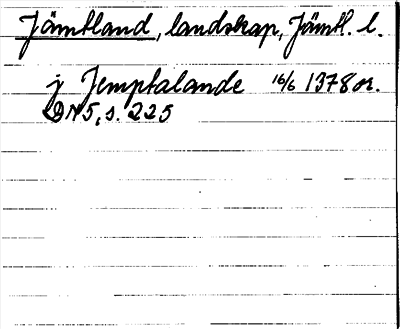 Jämtland, landskap, Jämtl. l.
j Jemptalande 16/6 1378 or.
DN5, s. 225